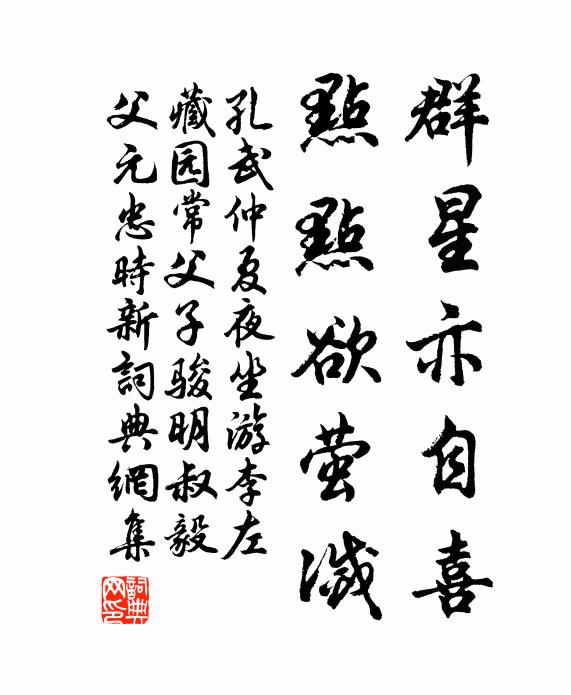 群星亦自喜
點點欲萤滅
孔武仲夏夜坐游李左
藏园常父子骏明叔毅
父元忠時新詞典網集
詞典网印